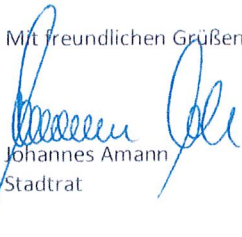 Mit freundlichen Grüßen
Johannes Amann
Stadtrat